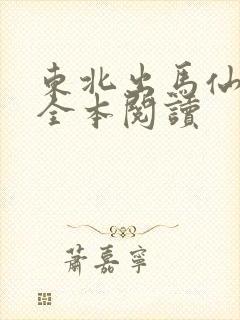 東北出馬仙
全本閱讀
蕭嘉寧